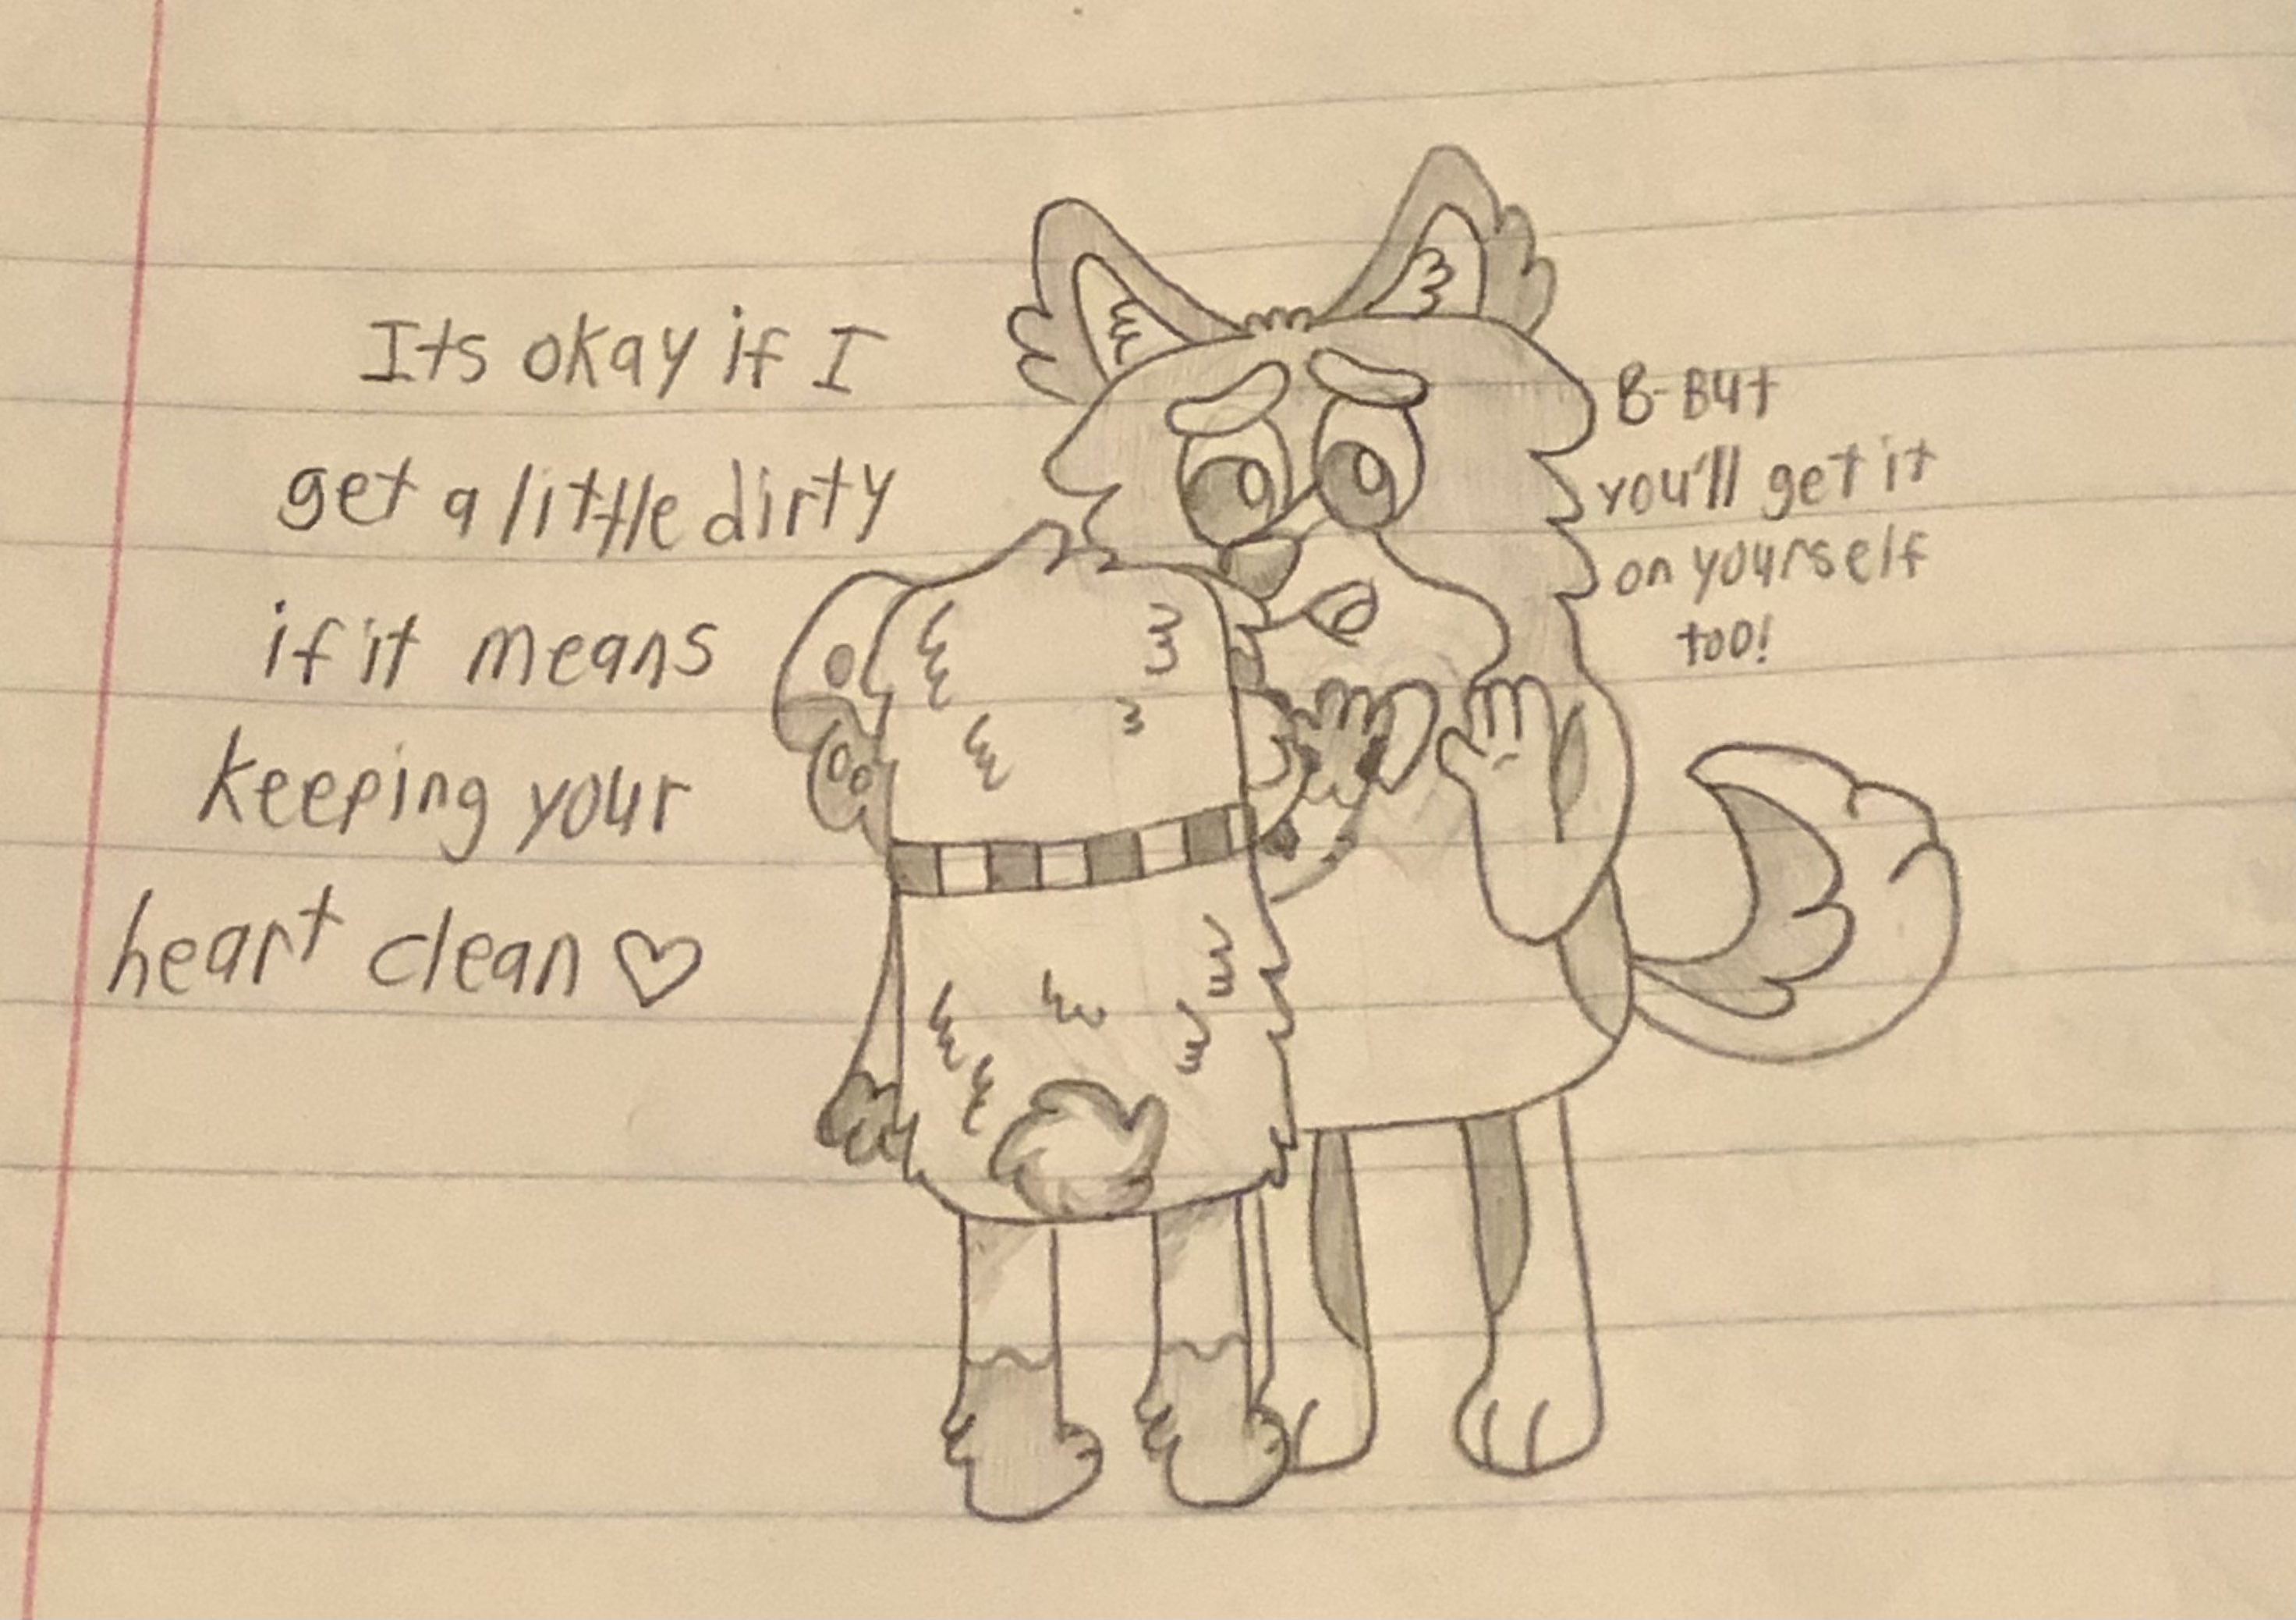 Its okay if I
get a little dirty
if it means
keeping your
heart clean ♡
B-But
you'll get it
on yourself
too!